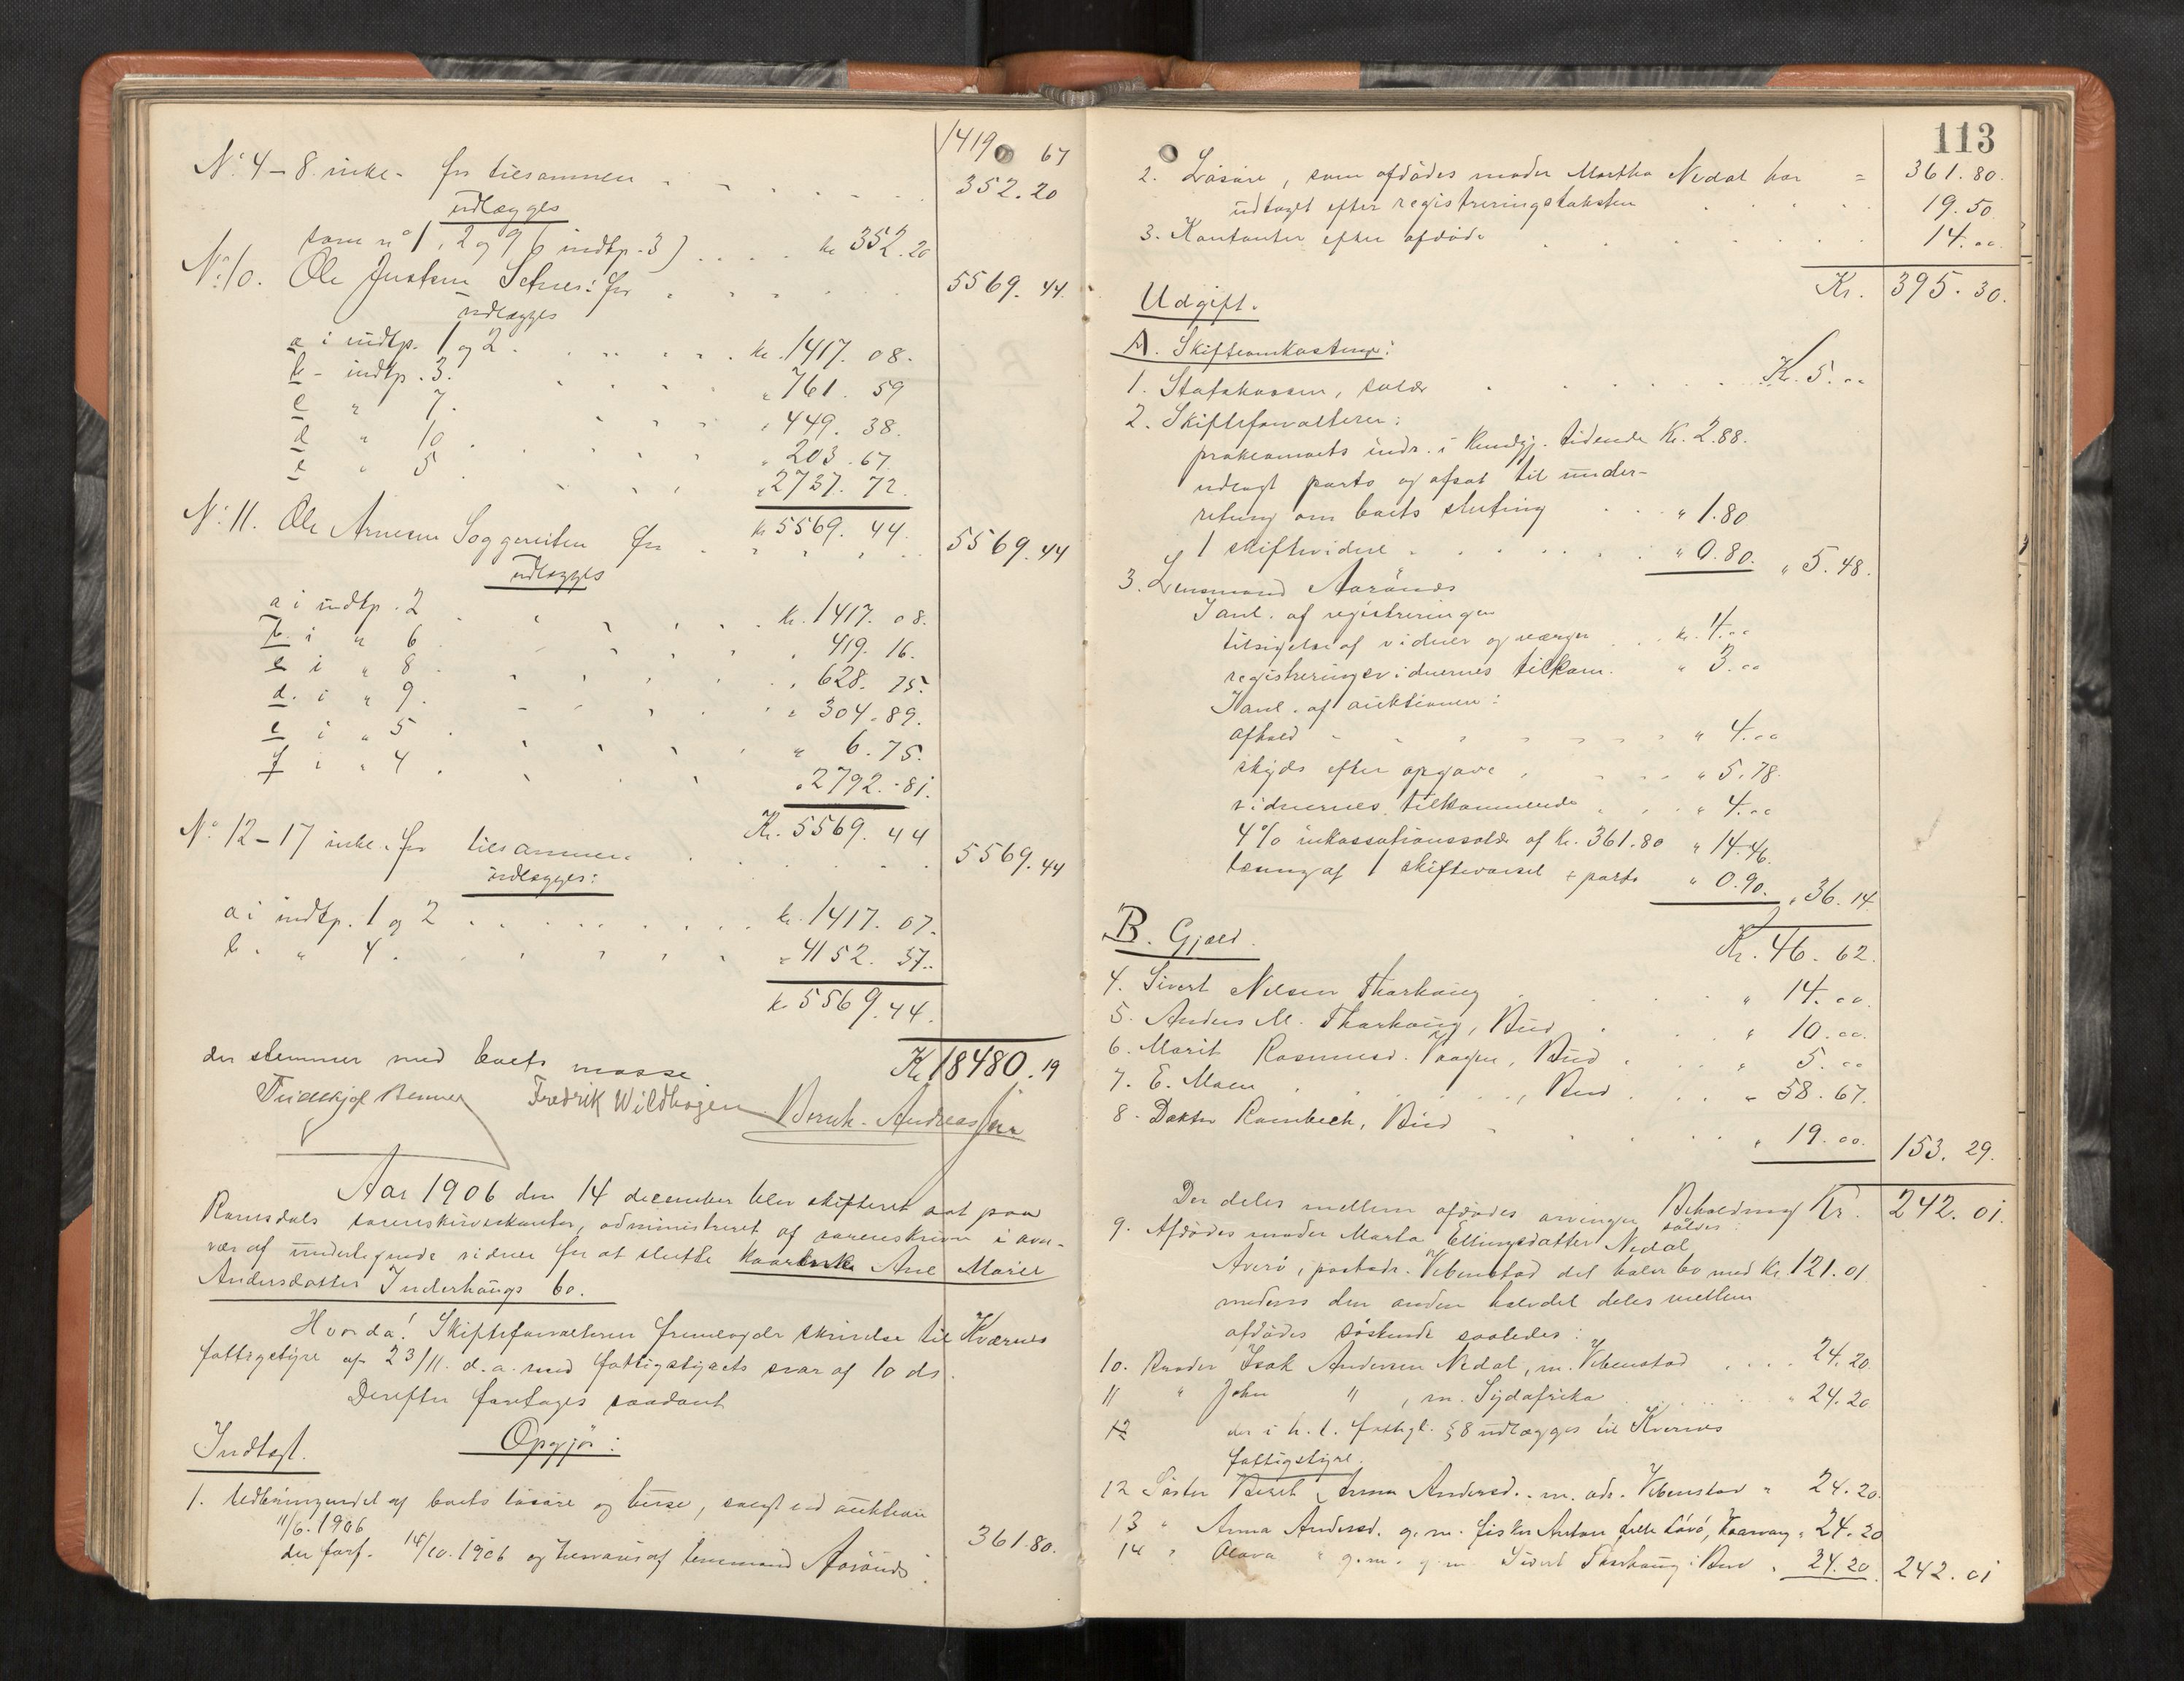 1419. 67
No. 4 - 8 inkl. for tilsammen . . . . . 352.20
udlægges
som no 1, 2 og 9 (indtp. 3) . . . . kr 352.20
No. 10. Ole Justsen for . . . . 5569. 44.
udlægges
a i indtp. 1 og 2 . . . . . kr. 1417. 08.
b - indtp. 3. . . . . " 761. 59
c " 7. . . . . " 449. 38.
d " 10 . . . . . " 203. 67.
e " 5 . . . . " 2737. 72.
kr 5569. 44.
No. 11. Ole Arnesen for . . . . 5569. 44
udlægges
a i indtp. 2 . . . . . kr. 1417. 08.
b. i " 6 . . . . " 419. 16.
c i " 8 . . . . " 628. 75.
d. i " 9. . . . . " 304. 89.
e i " 5 . . . . . " 6. 75.
f i " 4 . . . . " 2792. 81.
Kr. 5569. 44
No. 12 - 17 inkl. for tilsammen . . . . 5569. 44
udlægges:
a i indtp. 1 og 2 . . . . . . . kr. 1417. 07.
b. " 4 . . . . . . " 4152. 37.
kr 5569. 44.
der stemmer med boets masse Kr. 18480. 19
Fredrik Wildhagen Bernh. Andreassen
Aar 1906 den 14 december blev skifteret sat paa
Romsdals sorenskriverkontor, administreret af sorenskriver i over-
vær af undertegnede vidner for at slutte Ane Marie
Andersdatter Inderhaugs bo.
Hvorda! Skifteforvalteren fremlagde skrivelse til Kværnes
fattigstyre af 23/11. d.a. med fattigstyrets svar af 10 ds.
Derefter foretages saadant
Opgjör:
Indtægt.
1. Udbringendet af boets lösöre og huse, solgt ved auktion
11/6. 1906
der forf. 14/10. 1906 og af lensmand Aarönes . 361. 80.
113
2. Lösöre, som afdödes moder Martha Nedal har = 361. 80.
udtaget efter registreringstaksten . . . . 19. 50
3. Kontanter efter afdöde . . . . . . 14. 00
Kr. 395. 30.
Udgift.
A. Skifteomkostninger:
1. Statskassen, salær . . . . . Kr. 5. 00
2. Skifteforvalteren:
proklamaets indr. i Kundgj. tidende Kr. 2.88.
udlagt porto og afsat til under-
retning om boets slutning . . . " 1.80
1 skiftevidne . . . . . . " 0.80. " 5. 48.
3. Lensmand Aarönes
I anl. af registreringen
tilsigelse af vidner og værger . . kr. 4. 00
registreringsvidnernes tilkom. " 3. 00
I anl. af auktionen:
afhold . . . . . . " 4. 00
skyds efter opgave . . . . " 5. 78.
vidnernes tilkommende . . . " 4. 00
4 % inkassationssalær af kr. 361. 80 " 14. 46.
læsning af 1 skiftevarsel + porto " 0. 90. " 36. 14
Kr. 46. 62.
B. Gjæld.
4. Sivert Nilsen Tharhaug . . . . " 14. 00.
5. Anders M. Tharhaug, Bud . . . " 10. 00.
6. Marit Rasmusd. Vaagen, Bud . . . " 5. 00
7. E. Moen . . . . . , Bud . . . " 58. 67.
8. Doktor Rambech, Bud . . . . " 19. 00. 153. 29.
Beholdning Kr. 242. 01.
Der deles mellem afdödes arvinger således:
9. Afdödes moder Marta Ellingsdatter Nedal
Averö, postadr. Vebenstad det halve bo med kr. 121. 01
medens den anden halvdel deles mellem
afdödes söskende saaledes:
10. Broder Isak Andersen Nedal, m. Vebenstad . . . . 24. 20
11 " John " , m. Sydafrika . . . . " 24. 20
12 der i h. t. fattigl. § 8 udlægges til Kvernes
fattigstyre.
12 Söster Berit Anna Andersd. . m. adr. Vebenstad " 24. 20.
13 " Anna Andersd. g. m. fisker Anton " 24. 20
14 " Olava " g. m. Sivert Tharhaug. Bud " 24. 20 242. 01